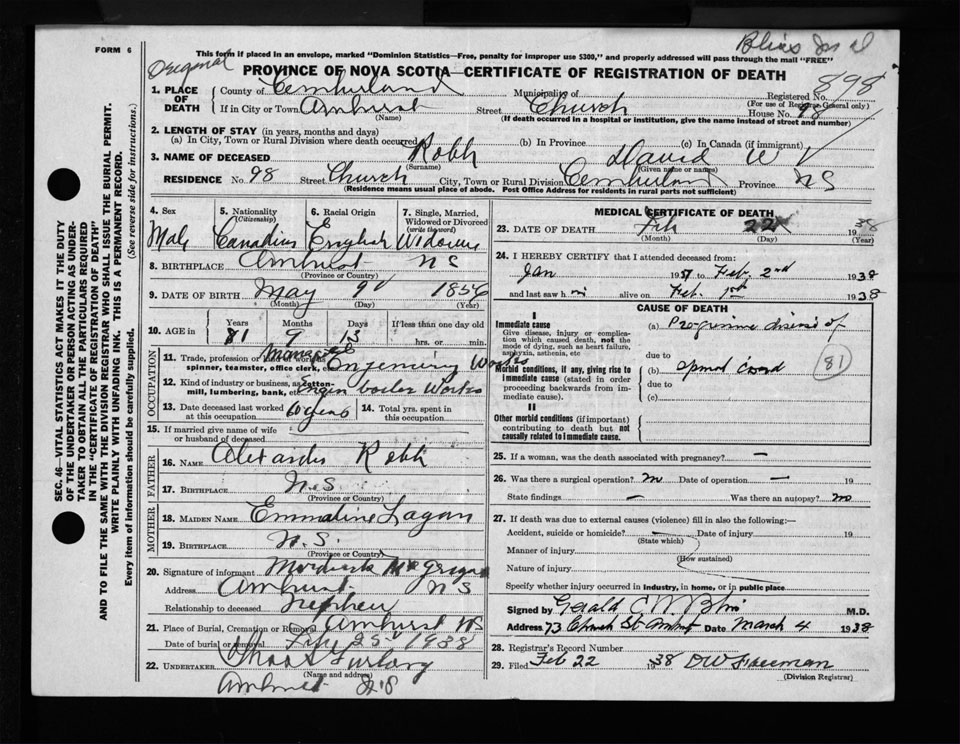 FORM 6
This form if placed in an envelope, marked "Dominion Statistics—Free, penalty for improper use $300," and properly addressed will pass through the mail "FREE"
Original
PROVINCE OF NOVA SCOTIA—CERTIFICATE OF REGISTRATION OF DEATH
898
1. PLACE OF DEATH
County of Cumberland Municipality of Registered No.
(For use of Registrar General only)
If in City or Town Amherst Street Church House No. 98
(Name) (If death occurred in a hospital or institution, give the name instead of street and number)
2. LENGTH OF STAY (in years, months and days)
(a) In City, Town or Rural Division where death occurred (b) In Province (c) In Canada (if immigrant)
3. NAME OF DECEASED Robb David W
(Surname) (Given name or names)
RESIDENCE No. 98 Street Church City, Town or Rural Division Cumberland Province NS
(Residence means usual place of abode. Post Office Address for residents in rural parts not sufficient)
4. Sex 5. Nationality (Citizenship) 6. Racial Origin 7. Single, Married, Widowed or Divorced (write the word)
Male Canadian English Widower
8. BIRTHPLACE Amherst NS
(Province or Country)
9. DATE OF BIRTH May 9 1856
(Month) (Day) (Year)
10. AGE in Years Months Days If less than one day old
81 9 13 hrs. or min.
OCCUPATION
11. Trade, profession or kind of work as spinner, teamster, office clerk, etc. Manager Engineering Works
12. Kind of industry or business, as cotton-mill, lumbering, bank, etc. Engin boiler Works
13. Date deceased last worked at this occupation 14. Total yrs. spent in this occupation
15. If married give name of wife or husband of deceased
FATHER
16. NAME Alexander Robb
17. BIRTHPLACE N.S.
(Province or Country)
MOTHER
18. MAIDEN NAME Emmaline Logan
19. BIRTHPLACE N.S.
(Province or Country)
20. Signature of informant McGregor
Address Amherst NS
Relationship to deceased Nephew
21. Place of Burial, Cremation or Removal Amherst NS
Date of burial or removal 25 1938
22. UNDERTAKER Chas Furlong
(Name and address)
Amherst NS
MEDICAL CERTIFICATE OF DEATH
23. DATE OF DEATH Feb 22 1938
(Month) (Day) (Year)
24. I HEREBY CERTIFY that I attended deceased from:
Jan 1937 to Feb. 2nd 1938
and last saw him alive on Feb. 1st 1938
CAUSE OF DEATH
I
Immediate cause
Give disease, injury or complication which caused death, not the mode of dying, such as heart failure, asphyxia, asthenia, etc
(a) Progressive disease of
due to
Morbid conditions, if any, giving rise to immediate cause (stated in order proceeding backwards from immediate cause).
(b) Spinal Cord
81
due to
(c)
II
Other morbid conditions (if important) contributing to death but not causally related to immediate cause.
25. If a woman, was the death associated with pregnancy? —
26. Was there a surgical operation? no Date of operation —
State findings — Was there an autopsy? no
27. If death was due to external causes (violence) fill in also the following:—
Accident, suicide or homicide? Date of injury 19
(State which)
Manner of injury
(How sustained)
Nature of injury
Specify whether injury occurred in industry, in home, or in public place
Signed by Gerald M.D.
Address 73 Church St Amherst Date March 4 1938
28. Registrar's Record Number
29. Filed Feb 22 1938 DW Freeman
(Division Registrar)
SEC. 46—VITAL STATISTICS ACT MAKES IT THE DUTY
OF THE UNDERTAKER OR PERSON ACTING AS UNDER-
TAKER TO OBTAIN ALL THE PARTICULARS REQUIRED
IN THE "CERTIFICATE OF REGISTRATION OF DEATH"
AND TO FILE THE SAME WITH THE DIVISION REGISTRAR WHO SHALL ISSUE THE BURIAL PERMIT.
WRITE PLAINLY WITH UNFADING INK. THIS IS A PERMANENT RECORD.
Every item of information should be carefully supplied. (See reverse side for instructions.)